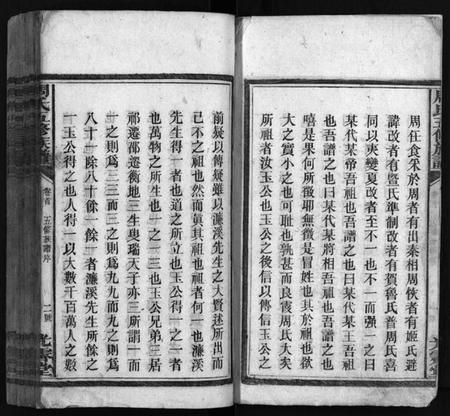 周任食采於周者有出秦相周攸者有姬氏避
諱改者有暨氏準制改者有賀魯氏普周氏喜
同以夾變夏改者至不一也不一而強一之曰
某代某帝吾祖也吾譜之也曰某代某王吾祖
也吾譜之也曰某代某將相吾祖也吾譜之也
嘻是果何所徵耶無徵是冒姓也其於祖也欲
大之實小之也可恥也孰甚而良霞周氏大矣
所祖者汝玉公也玉公之後信以傳信玉公之
前疑以傳疑雖以濂溪先生之大賢迷所出而
己不之祖也然而眞其祖也祖者何一也濂溪
先生得一者也道之所立也玉公得一之一者
也萬物之所生也一之一三也玉公兄弟三居
邵遷邵遷衡地三生叟瑞天子亦三所謂一而
一之則爲三三而三之則爲九九而九之則爲
八十一餘八十餘一餘一者濂溪先生所餘之
一玉公得之也人得一以大數千百萬人之數
周氏五修族譜
卷首
五修族譜序
二號
光霽堂